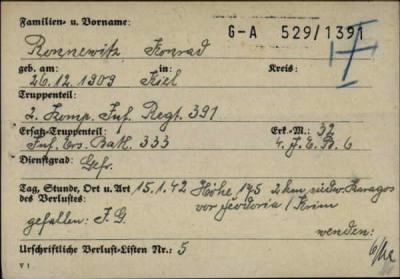 Familien- u. Vorname:
Ronnewitz Konrad G-A 529/1391
geb. am: in: Kreis:
26.12.1909 Kiel
Truppenteil:
2. Komp. Inf. Regt. 391
Ersatz-Truppenteil: Erk.-M.: 32
Inf. Ers. Batl. 333 4. J.E.B. 6
Dienstgrad: Gefr.
Tag, Stunde, Ort u. Art 15.1.42 Höhe 145 2 km
des Verlustes: vor Feodosia / Krim
gefallen: I. G. wenden:
Urschriftliche Verlust-Listen Nr.: 5
V 1